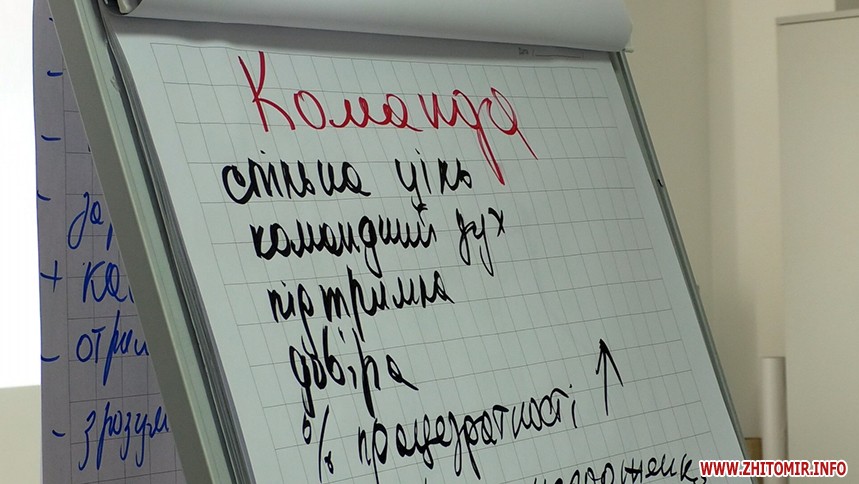 Команда
спільна ціль
командний дух
підтримка
довіра
% працездатності ↑
- 
-
- за
+ ка
- отрим
- зрозум
WWW.ZHITOMIR.INFO